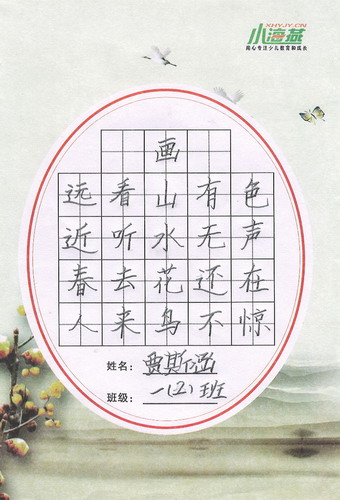 XHYJY.CN
小海燕
用心专注少儿教育和成长
画
远看山有色
近听水无声
春去花还在
人来鸟不惊
姓名：贾斯涵
班级：一(五)班